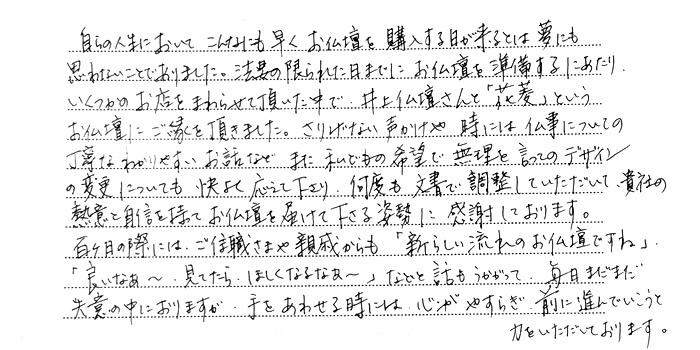 自らの人生において こんなにも早く お仏壇を 購入する日が来るとは 夢にも
思わないことでありました。法要の限られた日までに お仏壇を 準備するにあたり
いくつかの お店を まわらせて頂いた中で 井上仏壇さんと「花菱」という
お仏壇に ご縁を頂きました。さりげない声かけや 時には 仏事についての
丁寧な わかりやすい お話など また 私どもの 希望で 無理を 言ってのデザイン
の変更についても 快よく 応えて下さり、何度も 文書で 調整していただいて 貴社の
熱意と自信を持て お仏壇を 届けて下さる 姿勢に 感謝しております。
百ヶ日の際には、ご住職さまや親戚からも「新らしい流れのお仏壇ですね」
「良いなあ〜 見てたら ほしくなるなあ〜」などと 話も うかがって 毎日 まだまだ
失意の中におりますが 手をあわせる時には 心が やすらぎ 前に進んでいこうと
力をいただいております。